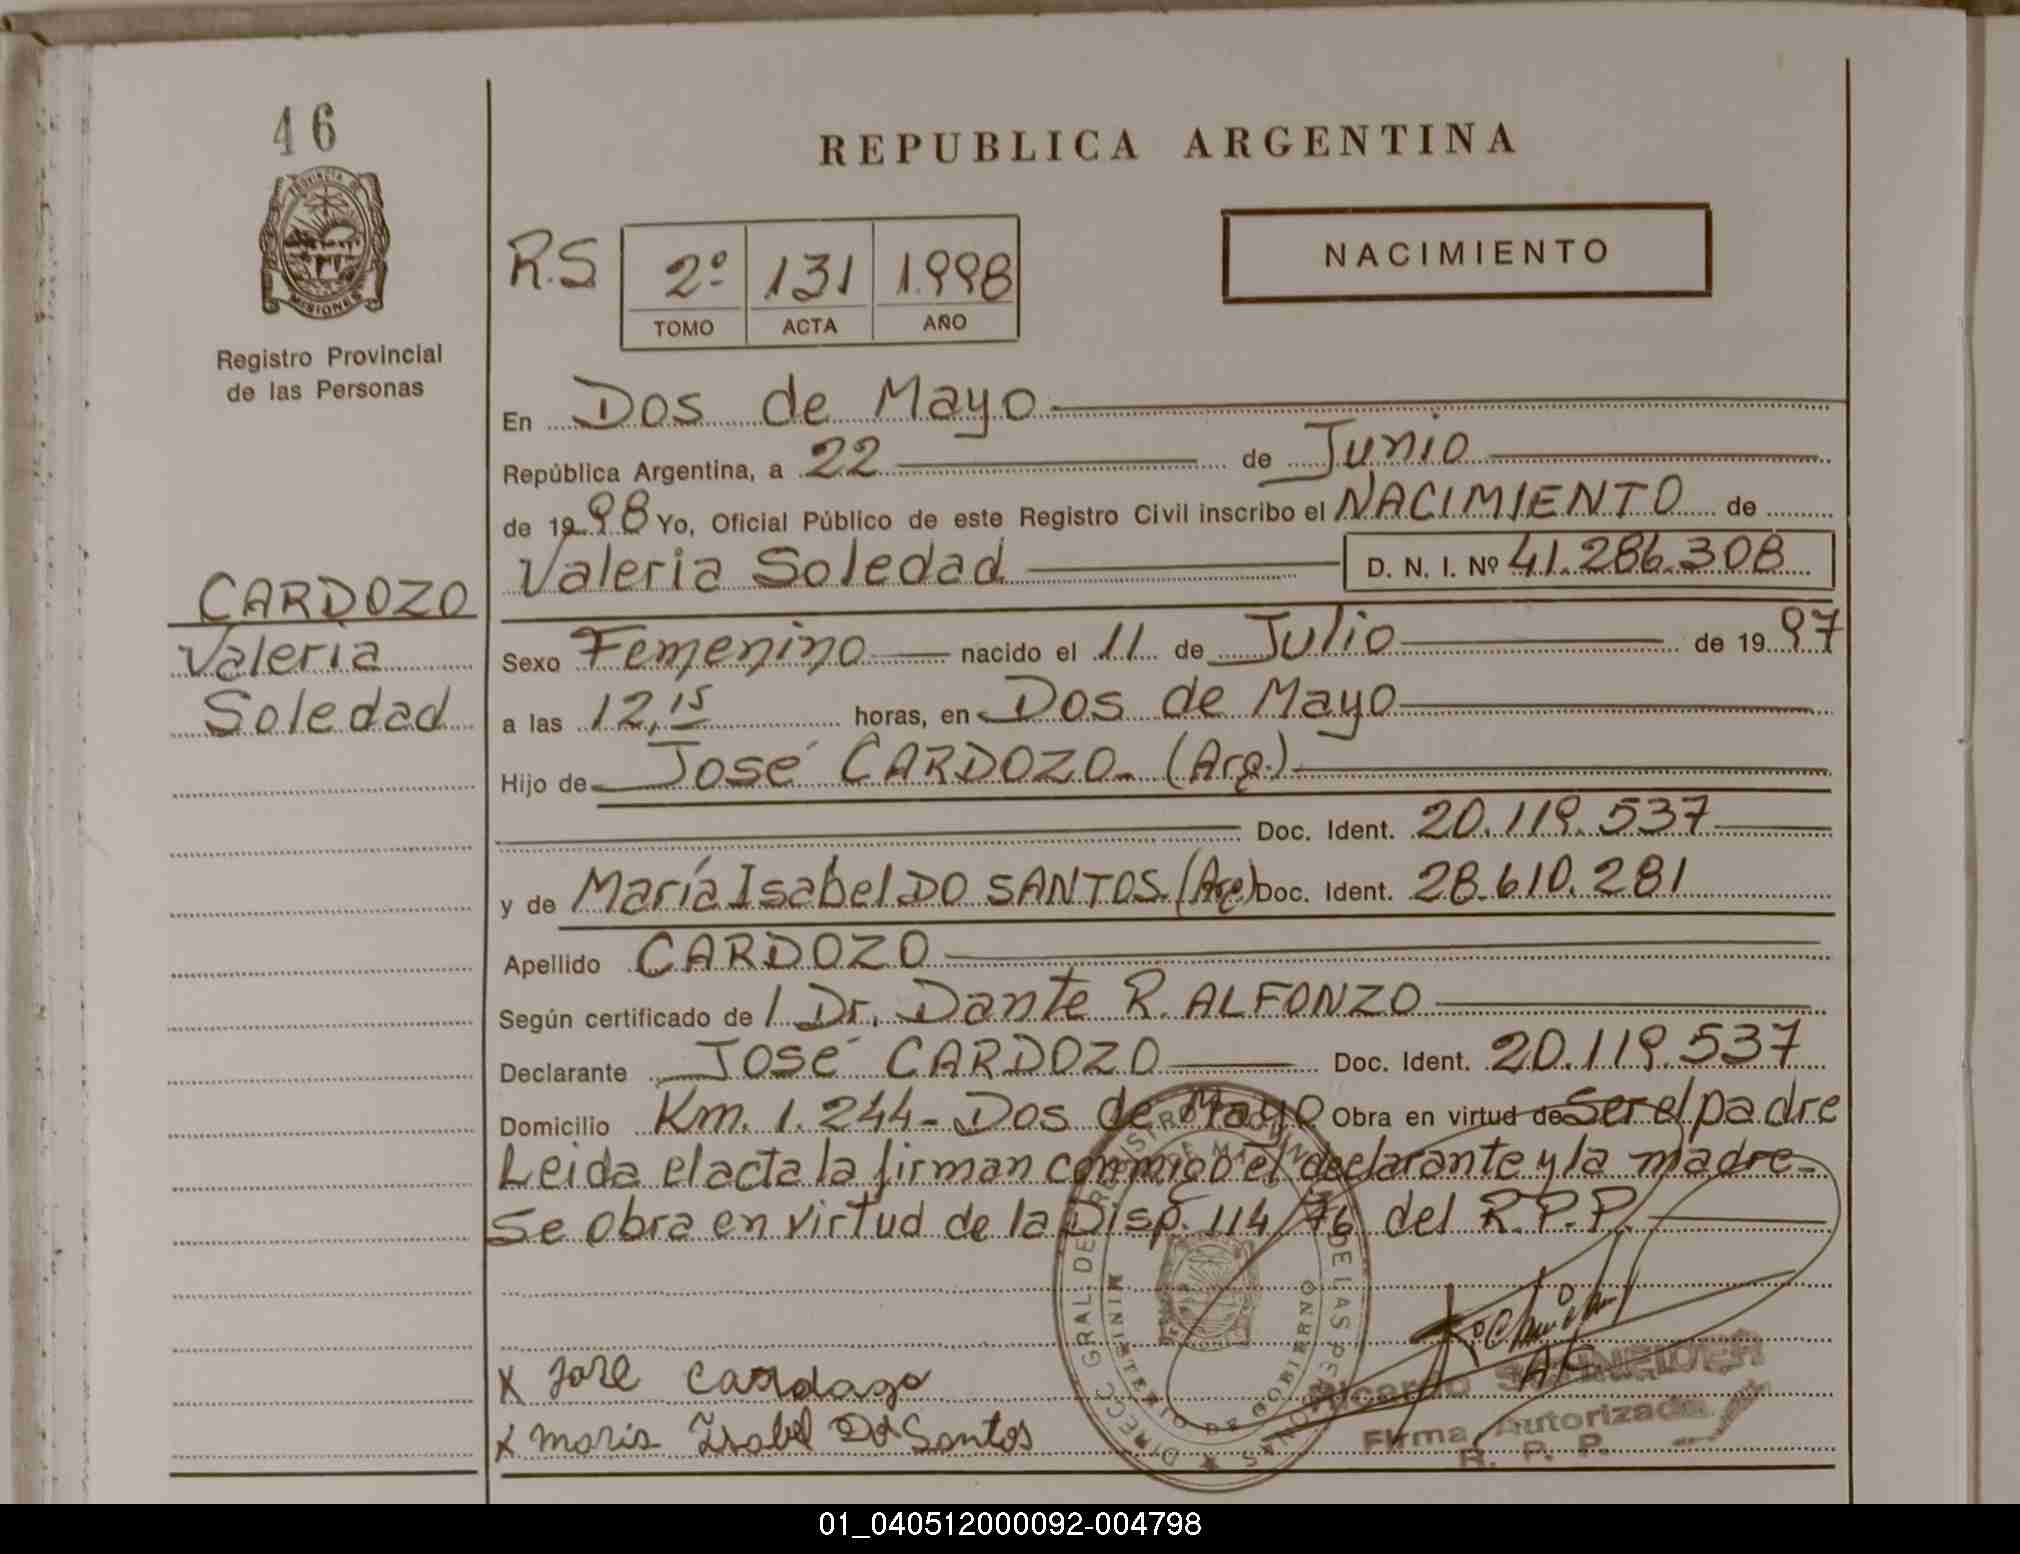 46
PROVINCIA DE
MISIONES
Registro Provincial
de las Personas
CARDOZO
Valeria
Soledad
REPUBLICA ARGENTINA
NACIMIENTO
R.S 2º 131 1.998
TOMO ACTA AÑO
En Dos de Mayo
República Argentina, a 22 de Junio
de 1998 Yo, Oficial Público de este Registro Civil inscribo el NACIMIENTO de
Valeria Soledad D. N. I. Nº 41.286.308
Sexo Femenino nacido el 11 de Julio de 1997
a las 12,15 horas, en Dos de Mayo
Hijo de José CARDOZO (Arg.)
Doc. Ident. 20.119.537
y de María Isabel DO SANTOS (Arg) Doc. Ident. 28.610.281
Apellido CARDOZO
Según certificado de / Dr. Dante R. ALFONZO
Declarante José CARDOZO Doc. Ident. 20.119.537
Domicilio Km. 1.244- Dos de Mayo Obra en virtud de Ser el padre
Leida el acta la firman conmigo el declarante y la madre-
Se obra en virtud de la Disp. 114/76 del R.P.P.
x José Cardozo
x Maria Isabel Do Santos
DIRECC. GRAL. DE REGISTRO DE LAS PERSONAS
MINISTERIO DE GOBIERNO
Ricardo SCHNEIDER
Firma Autorizada
R. P. P.
01_040512000092-004798